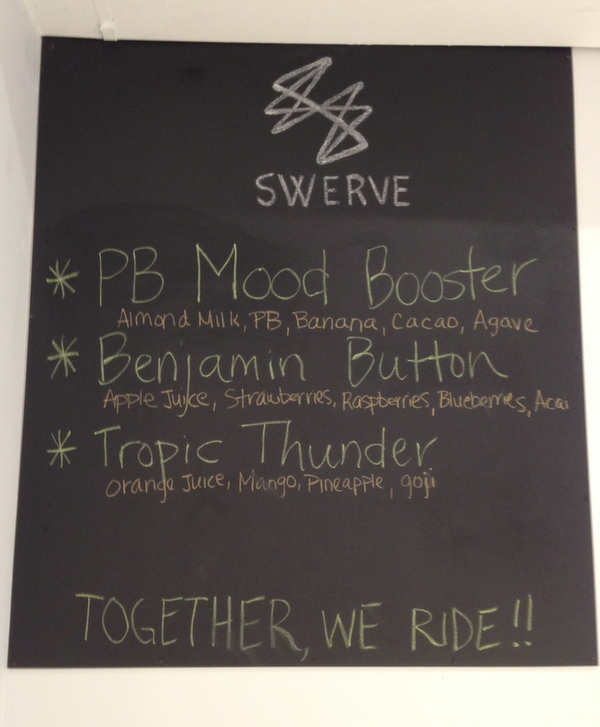 SWERVE
* PB Mood Booster
Almond Milk, PB, Banana, Cacao, Agave
* Benjamin Button
Apple Juice, Strawberries, Raspberries, Blueberries, Acai
* Tropic Thunder
Orange Juice, Mango, Pineapple, goji
TOGETHER, WE RIDE!!